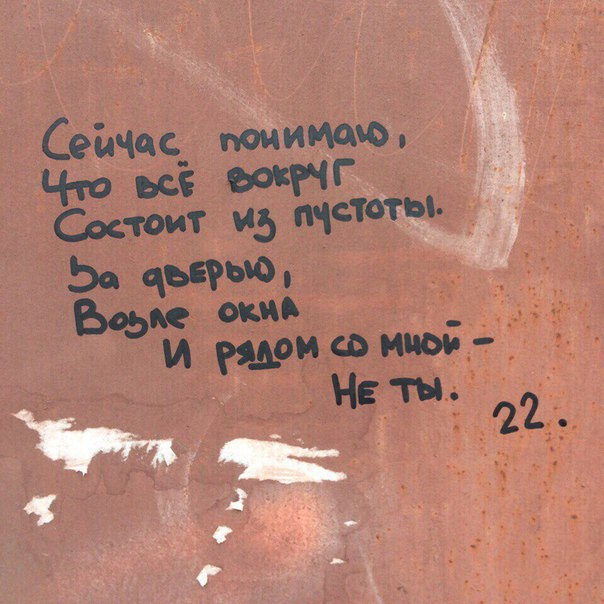 Сейчас понимаю,
Что всё вокруг
Состоит из пустоты.
За дверью,
Возле окна
И рядом со мной –
Не ты.
22.